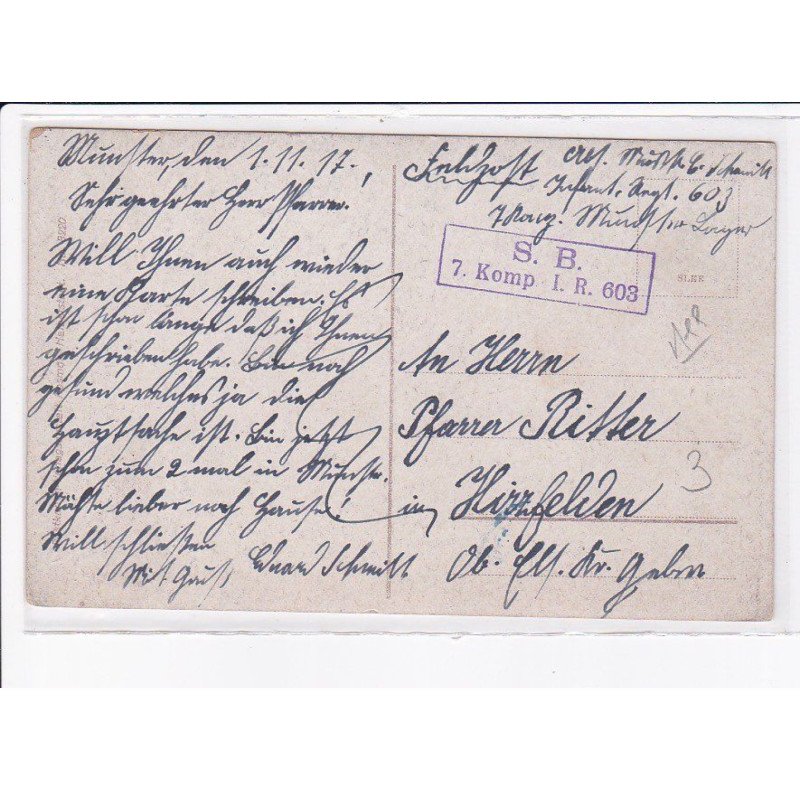 Munster, den 1.11.17.
Sehr geehrter Herr Pfarrer!
Will Ihnen auch wieder
eine Karte schreiben. Es
ist schon lange daß ich Ihnen
geschrieben habe. Bin noch
gesund welches ja die
Hauptsache ist. Bin jetzt
schon zum 2 mal in Munster.
Möchte lieber nach Hause!
Will schließen
Mit Gruß Eduard Schmitt
Feldpost Abs. Musk. E. Schmitt
Infant. Regt. 603
7 Komp. Munster Lager
S. B.
7. Komp I. R. 603
An Herrn
Pfarrer Ritter
in Hirzfelden
Ob. Els. Kr. Gebw
3